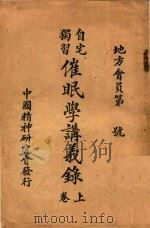 地方會員第 號
自宅
獨習
催眠學講義錄
上
卷
中國精神研究會發行